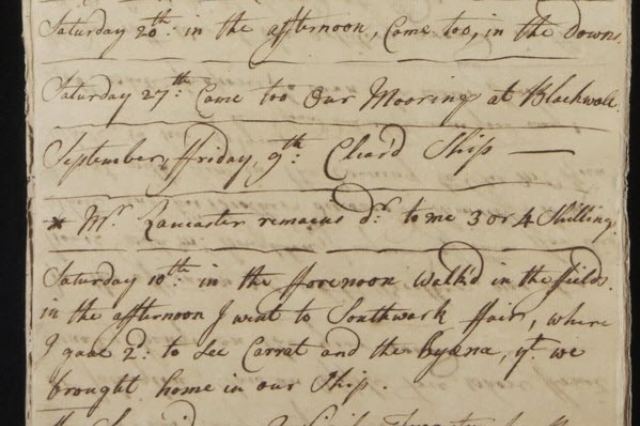 Saturday 20th: in the afternoon, Came too, in the Downs.
Saturday 27th: Came too Our Moorings at Blackwall
September, ffriday, 9th: Clear'd Ship —
* Mr. Lancaster remains dr. to me 3 or 4 Shillings.
Saturday 10th: in the fforenoon Walk'd in the ffields.
in the afternoon I went to Southwark ffair, where
I gave 2d. to see Carrat and the hyæna, yt. we
brought home in our Ship.